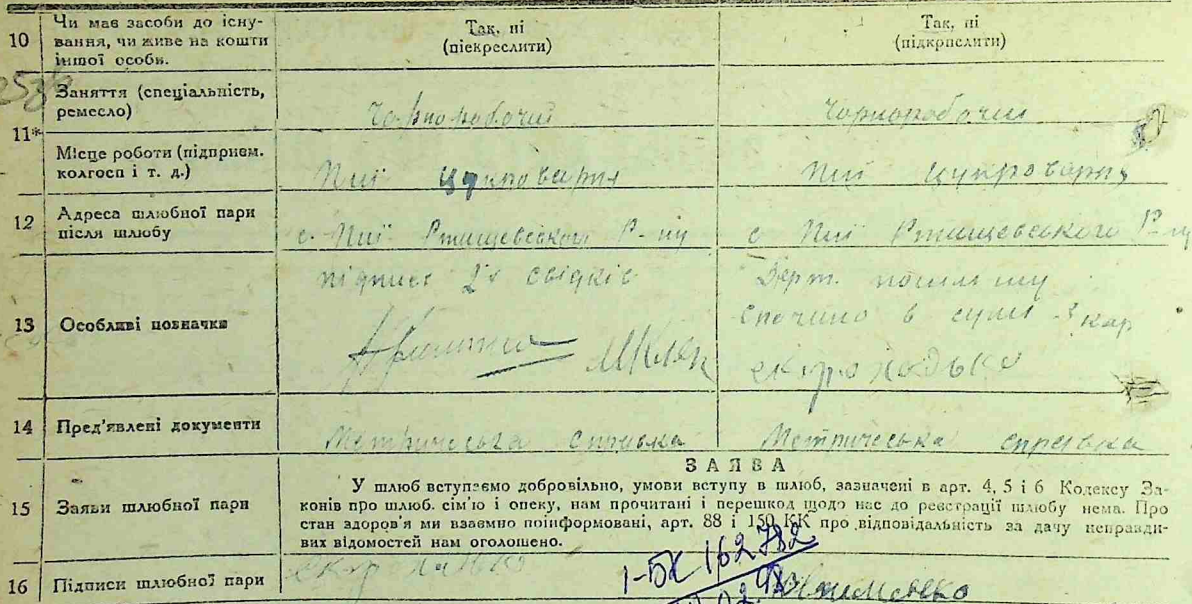 10 Чи має засоби до існування, чи живе на кошти іншої особи. Так, ні (піекреслити) Так, ні (підкрпслити)
11* Заняття (спеціальність, ремесло) Чорноробочий Чорноробочий
Місце роботи (підприєм. колгосп і т. д.) Пиї цукроварня Пиї цукроварня
12 Адреса шлюбної пари після шлюбу с. Пиї Ртищевського Р-ну с Пиї Ртищевського Р-ну
13 Особливі позначки підпис 2х свідків Держ. пошлину
в сумі 3 кар
14 Пред'явлені документи Метрическа справка Метрическа справка
ЗАЯВА
15 Заяви шлюбної пари У шлюб вступаємо добровільно, умови вступу в шлюб, зазначені в арт. 4, 5 і 6 Кодексу За-
конів про шлюб. сім'ю і опеку, нам прочитані і перешкод щодо нас до реєстрації шлюбу нема. Про
стан здоров'я ми взаємно поінформовані, арт. 88 і 150 КК про відповідальність за дачу неправди-
вих відомостей нам оголошено.
1-БК 162782
16 Підписи шлюбної пари